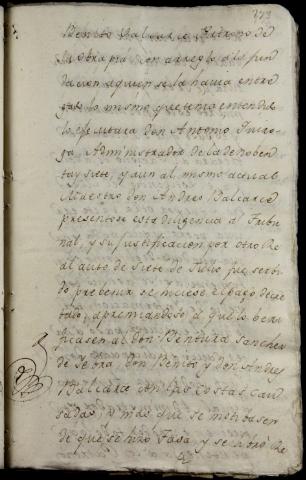 373
Benito Balcarce Patrono de
la obra pia con arreglo a la fun
dacion a quien se la havia entre
gado lo mismo que tenia entendido
lo executara don Antonio
Administrador de la de noben
ta y siete, y aun al mismo actual
Maestro don Andres Balcarce
presentose esta diligencia al Tribu
nal, y su justificacion por otro Re
al auto de siete de Julio fue servi
do prebenir se hiciese el pago decre
tado, apremiandose a que lo beri
ficasen al don Bentura Sanchez
de don Benito y don Andres
Balcarce con las costas cau
sadas, y mas que se motibasen
de que se hizo Tasa, y se libró Re